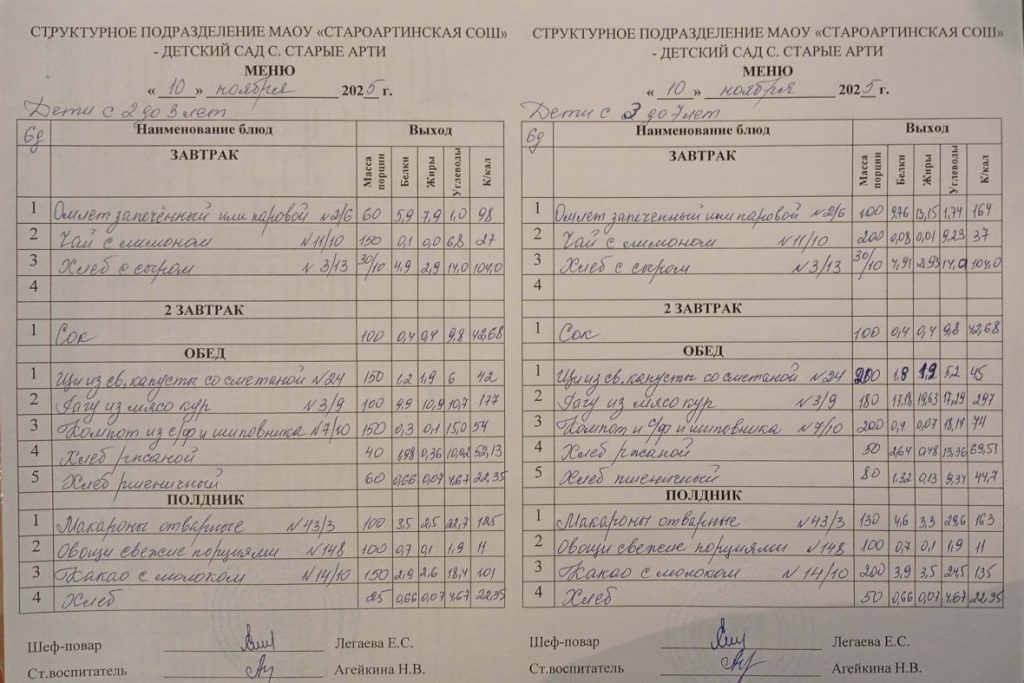 СТРУКТУРНОЕ ПОДРАЗДЕЛЕНИЕ МАОУ «СТАРОАРТИНСКАЯ СОШ»
- ДЕТСКИЙ САД С. СТАРЫЕ АРТИ
МЕНЮ
« 10 » ноября 2025 г.
Дети с 2 до 3 лет
6д Наименование блюд Выход
ЗАВТРАК Масса порции Белки Жиры Углеводы К/кал
1 Омлет запечённый или паровой №2/6 60 5,9 7,9 1,0 98
2 Чай с лимоном №11/10 150 0,1 0,0 6,8 27
3 Хлеб с сыром №3/13 30/10 4,9 2,9 14,0 104,0
4
2 ЗАВТРАК
1 Сок 100 0,4 0,4 9,8 42,68
ОБЕД
1 Щи из св. капусты со сметаной №24 150 1,2 1,9 6 42
2 Рагу из мясо кур №3/9 100 9,9 10,9 10,7 177
3 Компот из с/ф и шиповника №7/10 150 0,3 0,1 15,0 54
4 Хлеб ржаной 40 1,98 0,36 10,02 52,13
5 Хлеб пшеничный 60 0,66 0,07 4,67 22,35
ПОЛДНИК
1 Макароны отварные №43/3 100 3,5 2,5 22,7 125
2 Овощи свежие порциями №148 100 0,7 0,1 1,9 11
3 Какао с молоком №14/10 150 2,9 2,6 18,4 101
4 Хлеб 25 0,66 0,07 4,67 22,35
Шеф-повар Легаева Е.С.
Ст.воспитатель Агейкина Н.В.
СТРУКТУРНОЕ ПОДРАЗДЕЛЕНИЕ МАОУ «СТАРОАРТИНСКАЯ СОШ»
- ДЕТСКИЙ САД С. СТАРЫЕ АРТИ
МЕНЮ
« 10 » ноября 2025 г.
Дети с 3 до 7 лет
6д Наименование блюд Выход
ЗАВТРАК Масса порции Белки Жиры Углеводы К/кал
1 Омлет запеченный или паровой №2/6 100 9,76 13,15 1,74 164
2 Чай с лимоном №11/10 200 0,08 0,01 9,23 37
3 Хлеб с сыром №3/13 30/10 4,91 2,93 14,0 104,0
4
2 ЗАВТРАК
1 Сок 100 0,4 0,4 9,8 42,68
ОБЕД
1 Щи из св. капусты со сметаной №24 200 1,8 1,9 5,2 45
2 Рагу из мясо кур №3/9 180 17,18 19,63 17,29 297
3 Компот и с/ф и шиповника №7/10 200 0,4 0,07 18,14 74
4 Хлеб ржаной 50 2,64 0,48 13,36 69,51
5 Хлеб пшеничный 80 1,32 0,13 9,34 44,7
ПОЛДНИК
1 Макароны отварные №43/3 130 4,6 3,3 29,6 163
2 Овощи свежие порциями №148 100 0,7 0,1 1,9 11
3 Какао с молоком №14/10 200 3,9 3,5 24,5 135
4 Хлеб 50 0,66 0,07 4,67 22,35
Шеф-повар Легаева Е.С.
Ст.воспитатель Агейкина Н.В.